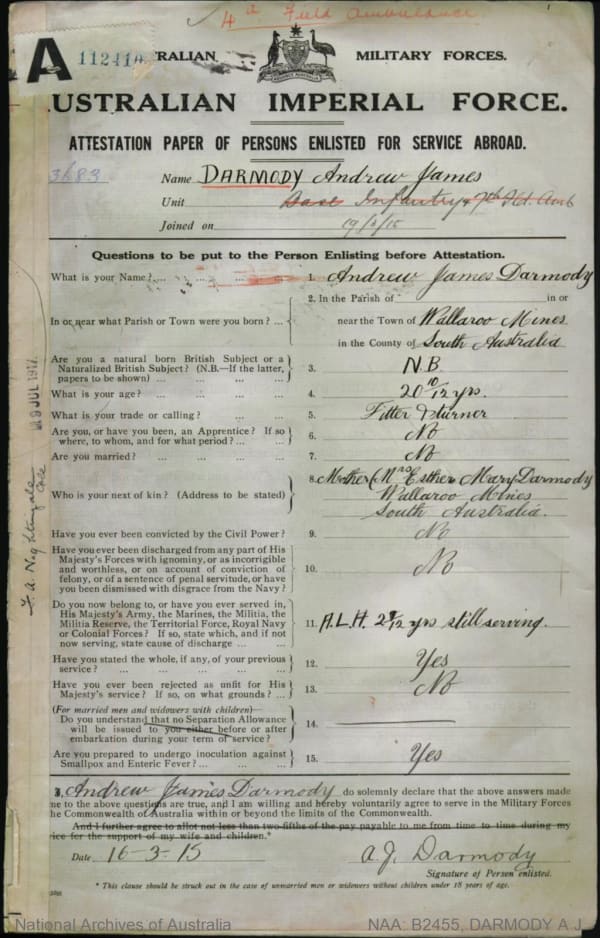 4th Field Ambulance
A 112414
TRALIAN MILITARY FORCES.
USTRALIAN IMPERIAL FORCE.
ATTESTATION PAPER OF PERSONS ENLISTED FOR SERVICE ABROAD.
3683
Name DARMODY Andrew James
Unit Base Infantry 4th Fld. Amb
Joined on 19/3/15
Questions to be put to the Person Enlisting before Attestation.
What is your Name? ... ... ... ... 1. Andrew James Darmody
2. In the Parish of in or
In or near what Parish or Town were you born? ... near the Town of Wallaroo Mines
in the County of South Australia
Are you a natural born British Subject or a
Naturalized British Subject? (N.B.—If the latter, 3. N.B.
papers to be shown) ... ... ... ...
What is your age? ... ... ... ... 4. 20 10/12 yrs.
What is your trade or calling? ... ... ... 5. Fitter & turner
Are you, or have you been, an Apprentice? If so
where, to whom, and for what period? ... ... 6. No
Are you married? ... ... ... ... 7. No
8. Mother (Mrs Esther Mary Darmody
Who is your next of kin? (Address to be stated) Wallaroo Mines
South Australia.
Have you ever been convicted by the Civil Power? 9. No
Have you ever been discharged from any part of His
Majesty's Forces with ignominy, or as incorrigible
and worthless, or on account of conviction of 10. No
felony, or of a sentence of penal servitude, or have
you been dismissed with disgrace from the Navy?
Do you now belong to, or have you ever served in,
His Majesty's Army, the Marines, the Militia, the
Militia Reserve, the Territorial Force, Royal Navy 11. A.L.H. still serving.
or Colonial Forces? If so, state which, and if not
now serving, state cause of discharge ... ...
Have you stated the whole, if any, of your previous 12. Yes
service? ... ... ... ...
Have you ever been rejected as unfit for His 13. No
Majesty's service? If so, on what grounds? ...
(For married men and widowers with children)—
Do you understand that no Separation Allowance 14.
will be issued to you either before or after
embarkation during your term of service?
Are you prepared to undergo inoculation against 15. Yes
Smallpox and Enteric Fever? ... ... ...
I, Andrew James Darmody do solemnly declare that the above answers made
me to the above questions are true, and I am willing and hereby voluntarily agree to serve in the Military Forces
he Commonwealth of Australia within or beyond the limits of the Commonwealth.
And I further agree to allot not less than two-fifths of the pay payable to me from time to time during my
ice for the support of my wife and children.*
Date 16-3-15 A.J. Darmody
Signature of Person enlisted.
* This clause should be struck out in the case of unmarried men or widowers without children under 18 years of age.
JUL 1917
F. A. Nightingale
National Archives of Australia NAA: B2455, DARMODY A J